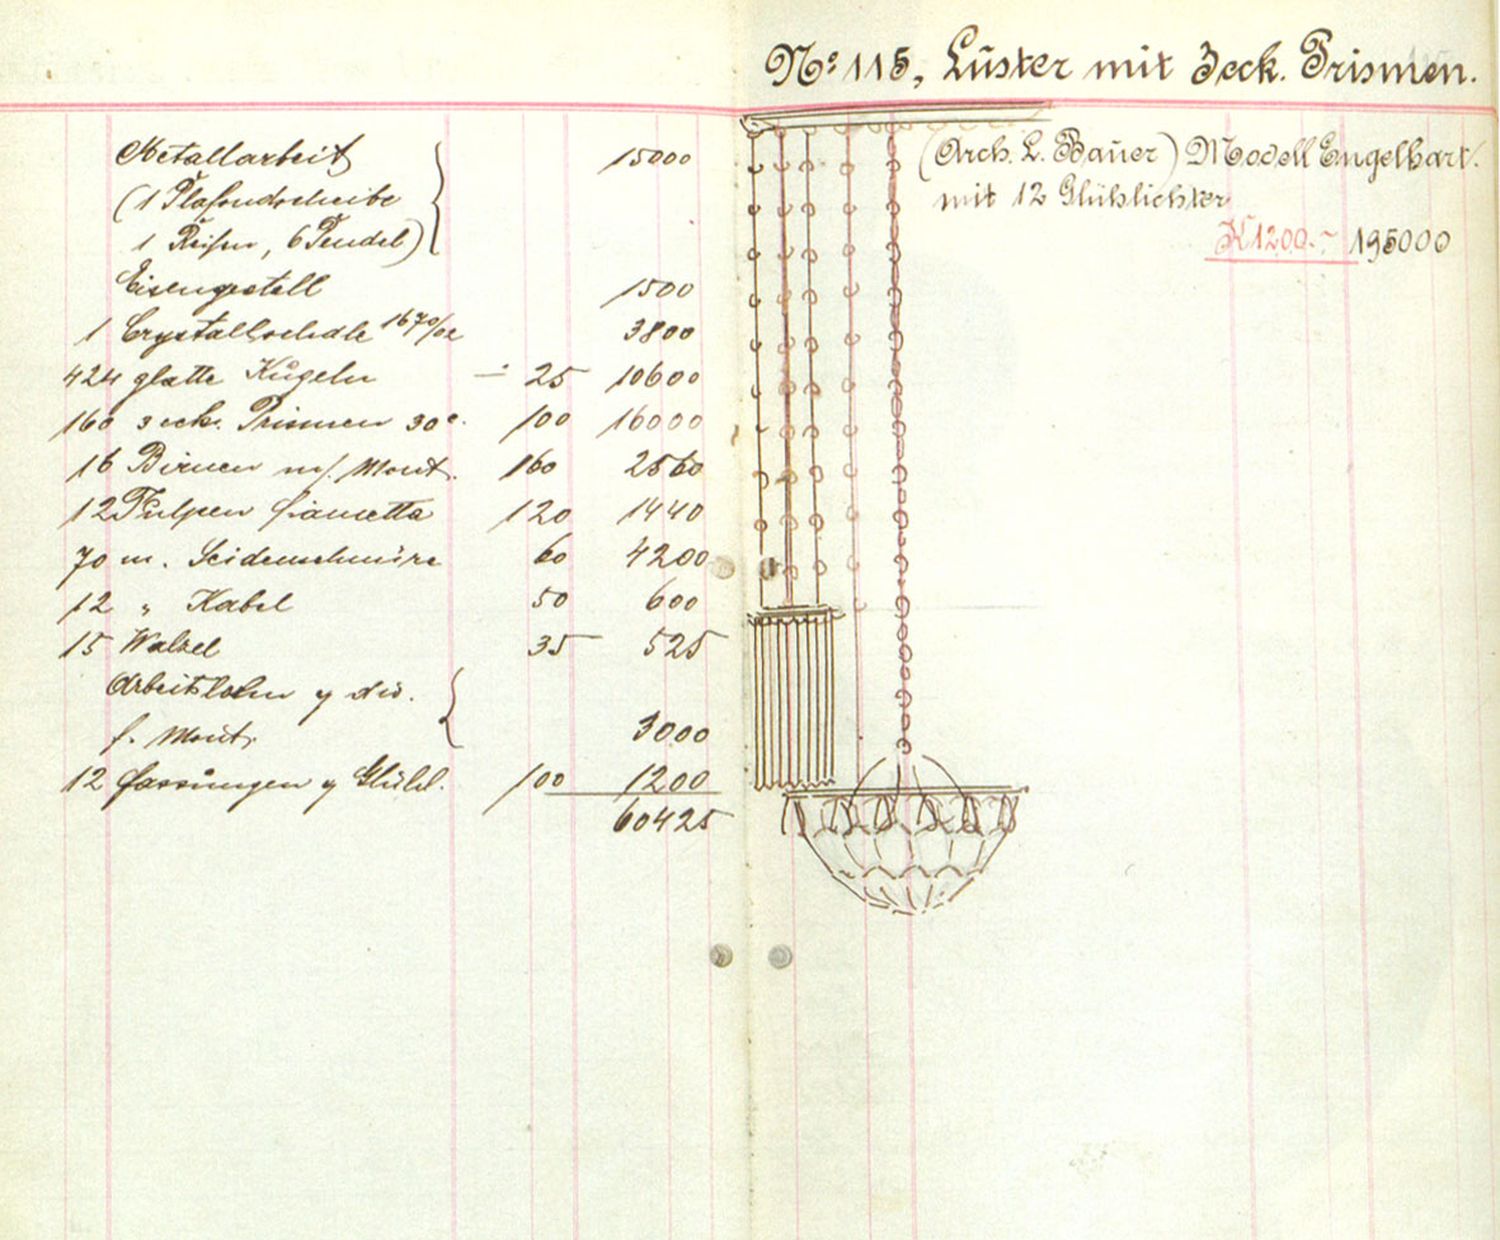 Nº 115, Lüster mit 3eck. Prismen.
Metallarbeit 15000
(1 Plafondscheibe
1 Reifen, 6 Pendel)
Eisengestell 1500
1 Crystallschale 1670/02 3800
424 glatte Kugeln 25 10600
160 3eck. Prismen 30c. 100 16000
16 Birnen m/. Mont. 160 2560
12 Tulpen 120 1440
70 m. Seidenschnüre 60 4200
12 " Kabel 50 600
15 35 525
Arbeitslohn y div.
f. Mont. 3000
12 Fassungen y Glühl. 100 1200
60425
(Arch. L. Bauer) Modell Engelhart.
mit 12 Glühlichter
K 1200.- 195000